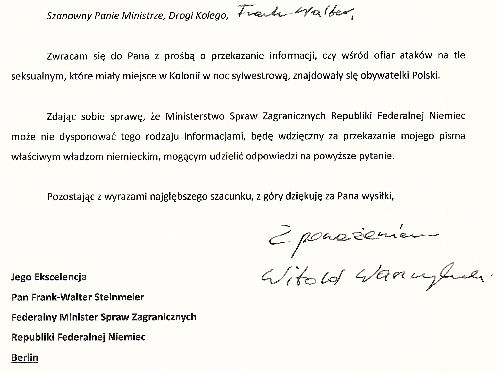 Szanowny Panie Ministrze, Drogi Kolego, Frank-Walter,
Zwracam się do Pana z prośbą o przekazanie informacji, czy wśród ofiar ataków na tle
seksualnym, które miały miejsce w Kolonii w noc sylwestrową, znajdowały się obywatelki Polski.
Zdając sobie sprawę, że Ministerstwo Spraw Zagranicznych Republiki Federalnej Niemiec
może nie dysponować tego rodzaju informacjami, będę wdzięczny za przekazanie mojego pisma
właściwym władzom niemieckim, mogącym udzielić odpowiedzi na powyższe pytanie.
Pozostając z wyrazami najgłębszego szacunku, z góry dziękuję za Pana wysiłki,
Z poważaniem
Witold Waszczykowski
Jego Ekscelencja
Pan Frank-Walter Steinmeier
Federalny Minister Spraw Zagranicznych
Republiki Federalnej Niemiec
Berlin